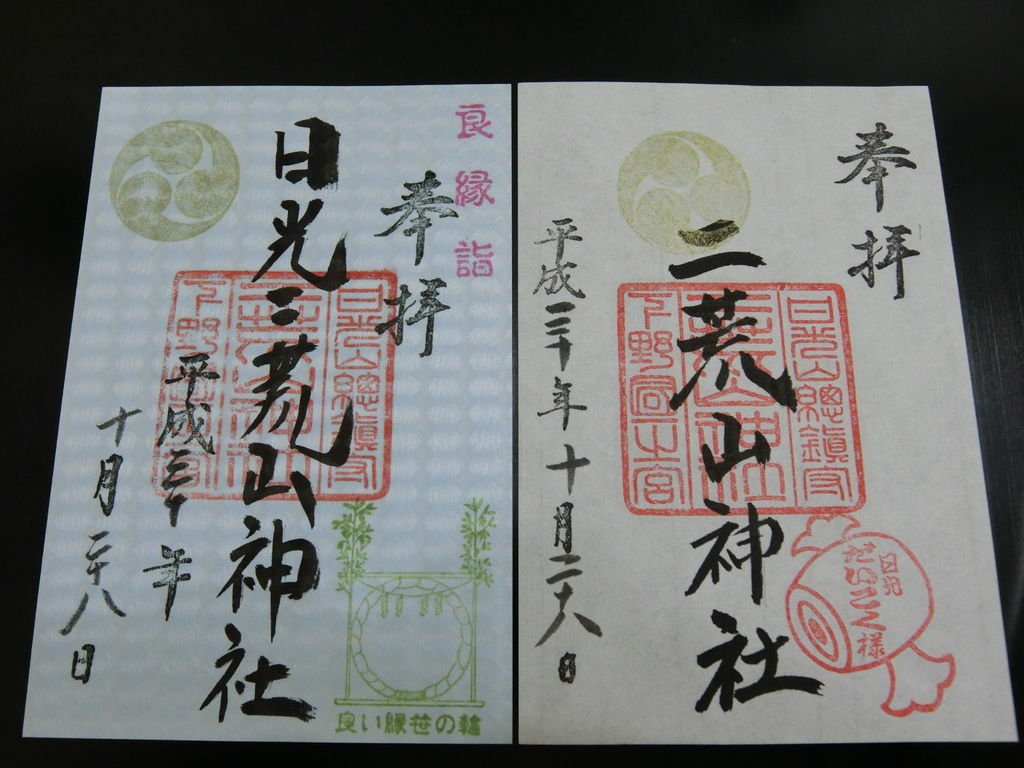 奉拝
二荒山神社
平成三十年十月二十八日
日光山總鎮守
二荒山神社
下野國一之宮
日光
だいこく様
良縁詣
奉拝
日光二荒山神社
平成三十年
十月二十八日
日光山總鎮守
二荒山神社
下野國一之宮
良い縁笹の輪